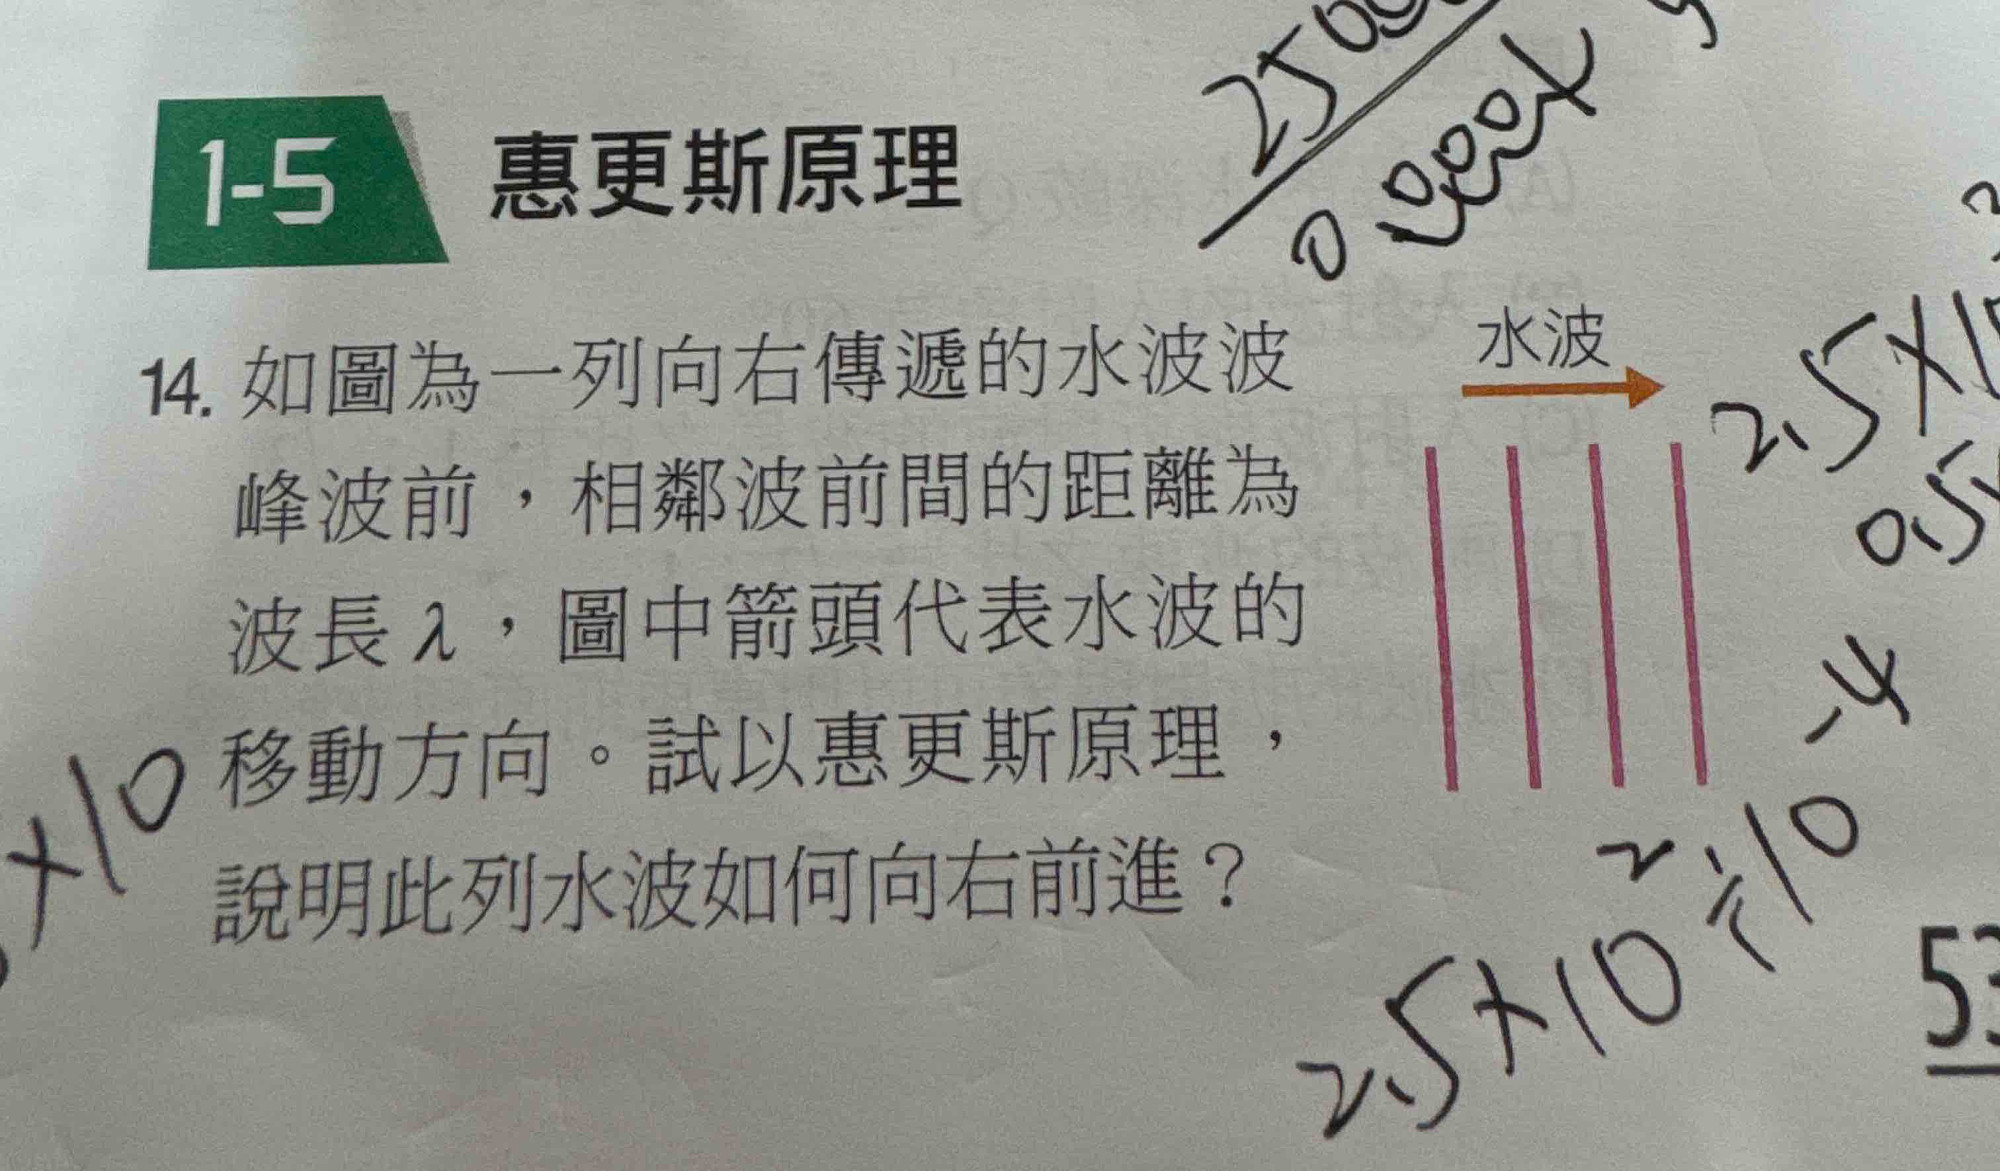 1-5 惠更斯原理
水波
14. 如圖為一列向右傳遞的水波波
峰波前，相鄰波前間的距離為
波長λ，圖中箭頭代表水波的
移動方向。試以惠更斯原理，
說明此列水波如何向右前進？
×10
2.5×10² ÷10⁻⁴
53